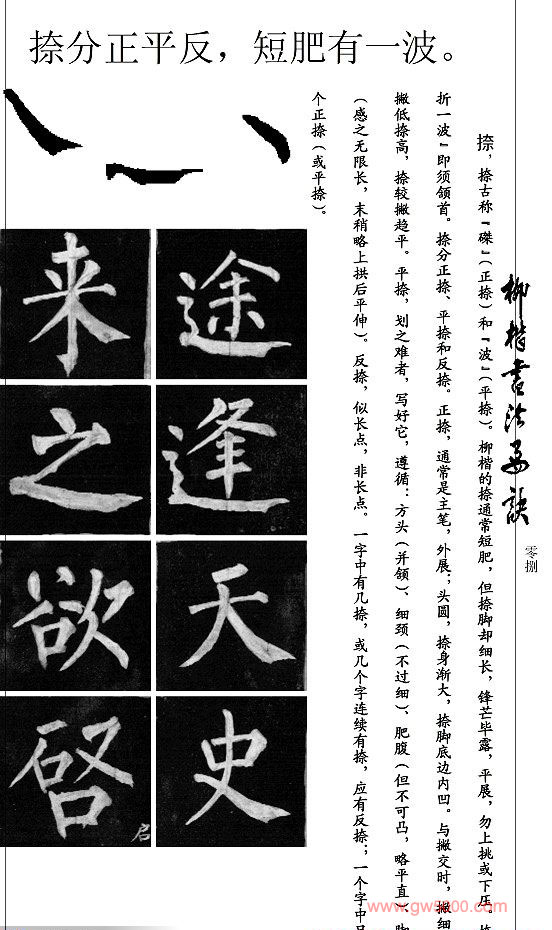 捺分正平反，短肥有一波。
捺，捺古称“磔”（正捺）和“波”（平捺）。柳楷的捺通常短肥，但捺脚却细长，锋芒毕露，平展，勿上挑或下压。
折一波”即须颔首。捺分正捺、平捺和反捺。正捺，通常是主笔，外展；头圆，捺身渐大，捺脚底边内凹。与撇交时，撇细
撇低捺高，捺较撇趋平。平捺，划之难者，写好它，遵循：方头（并颔）、细颈（不过细）、肥腹（但不可凸，略平直）、
（感之无限长，末稍略上拱后平伸）。反捺，似长点，非长点。一字中有几捺，或几个字连续有捺，应有反捺；一个字中
个正捺（或平捺）。
柳楷书法要诀
零捌
途
来
逢
之
天
欲
史
启
启
www.gw5000.com